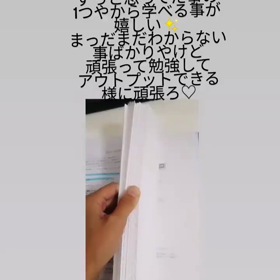 1つやから学べる事が
嬉しい✨
まっだまだわからない
事ばかりやけど
頑張って勉強して
アウトプットできる
様に頑張ろ♡